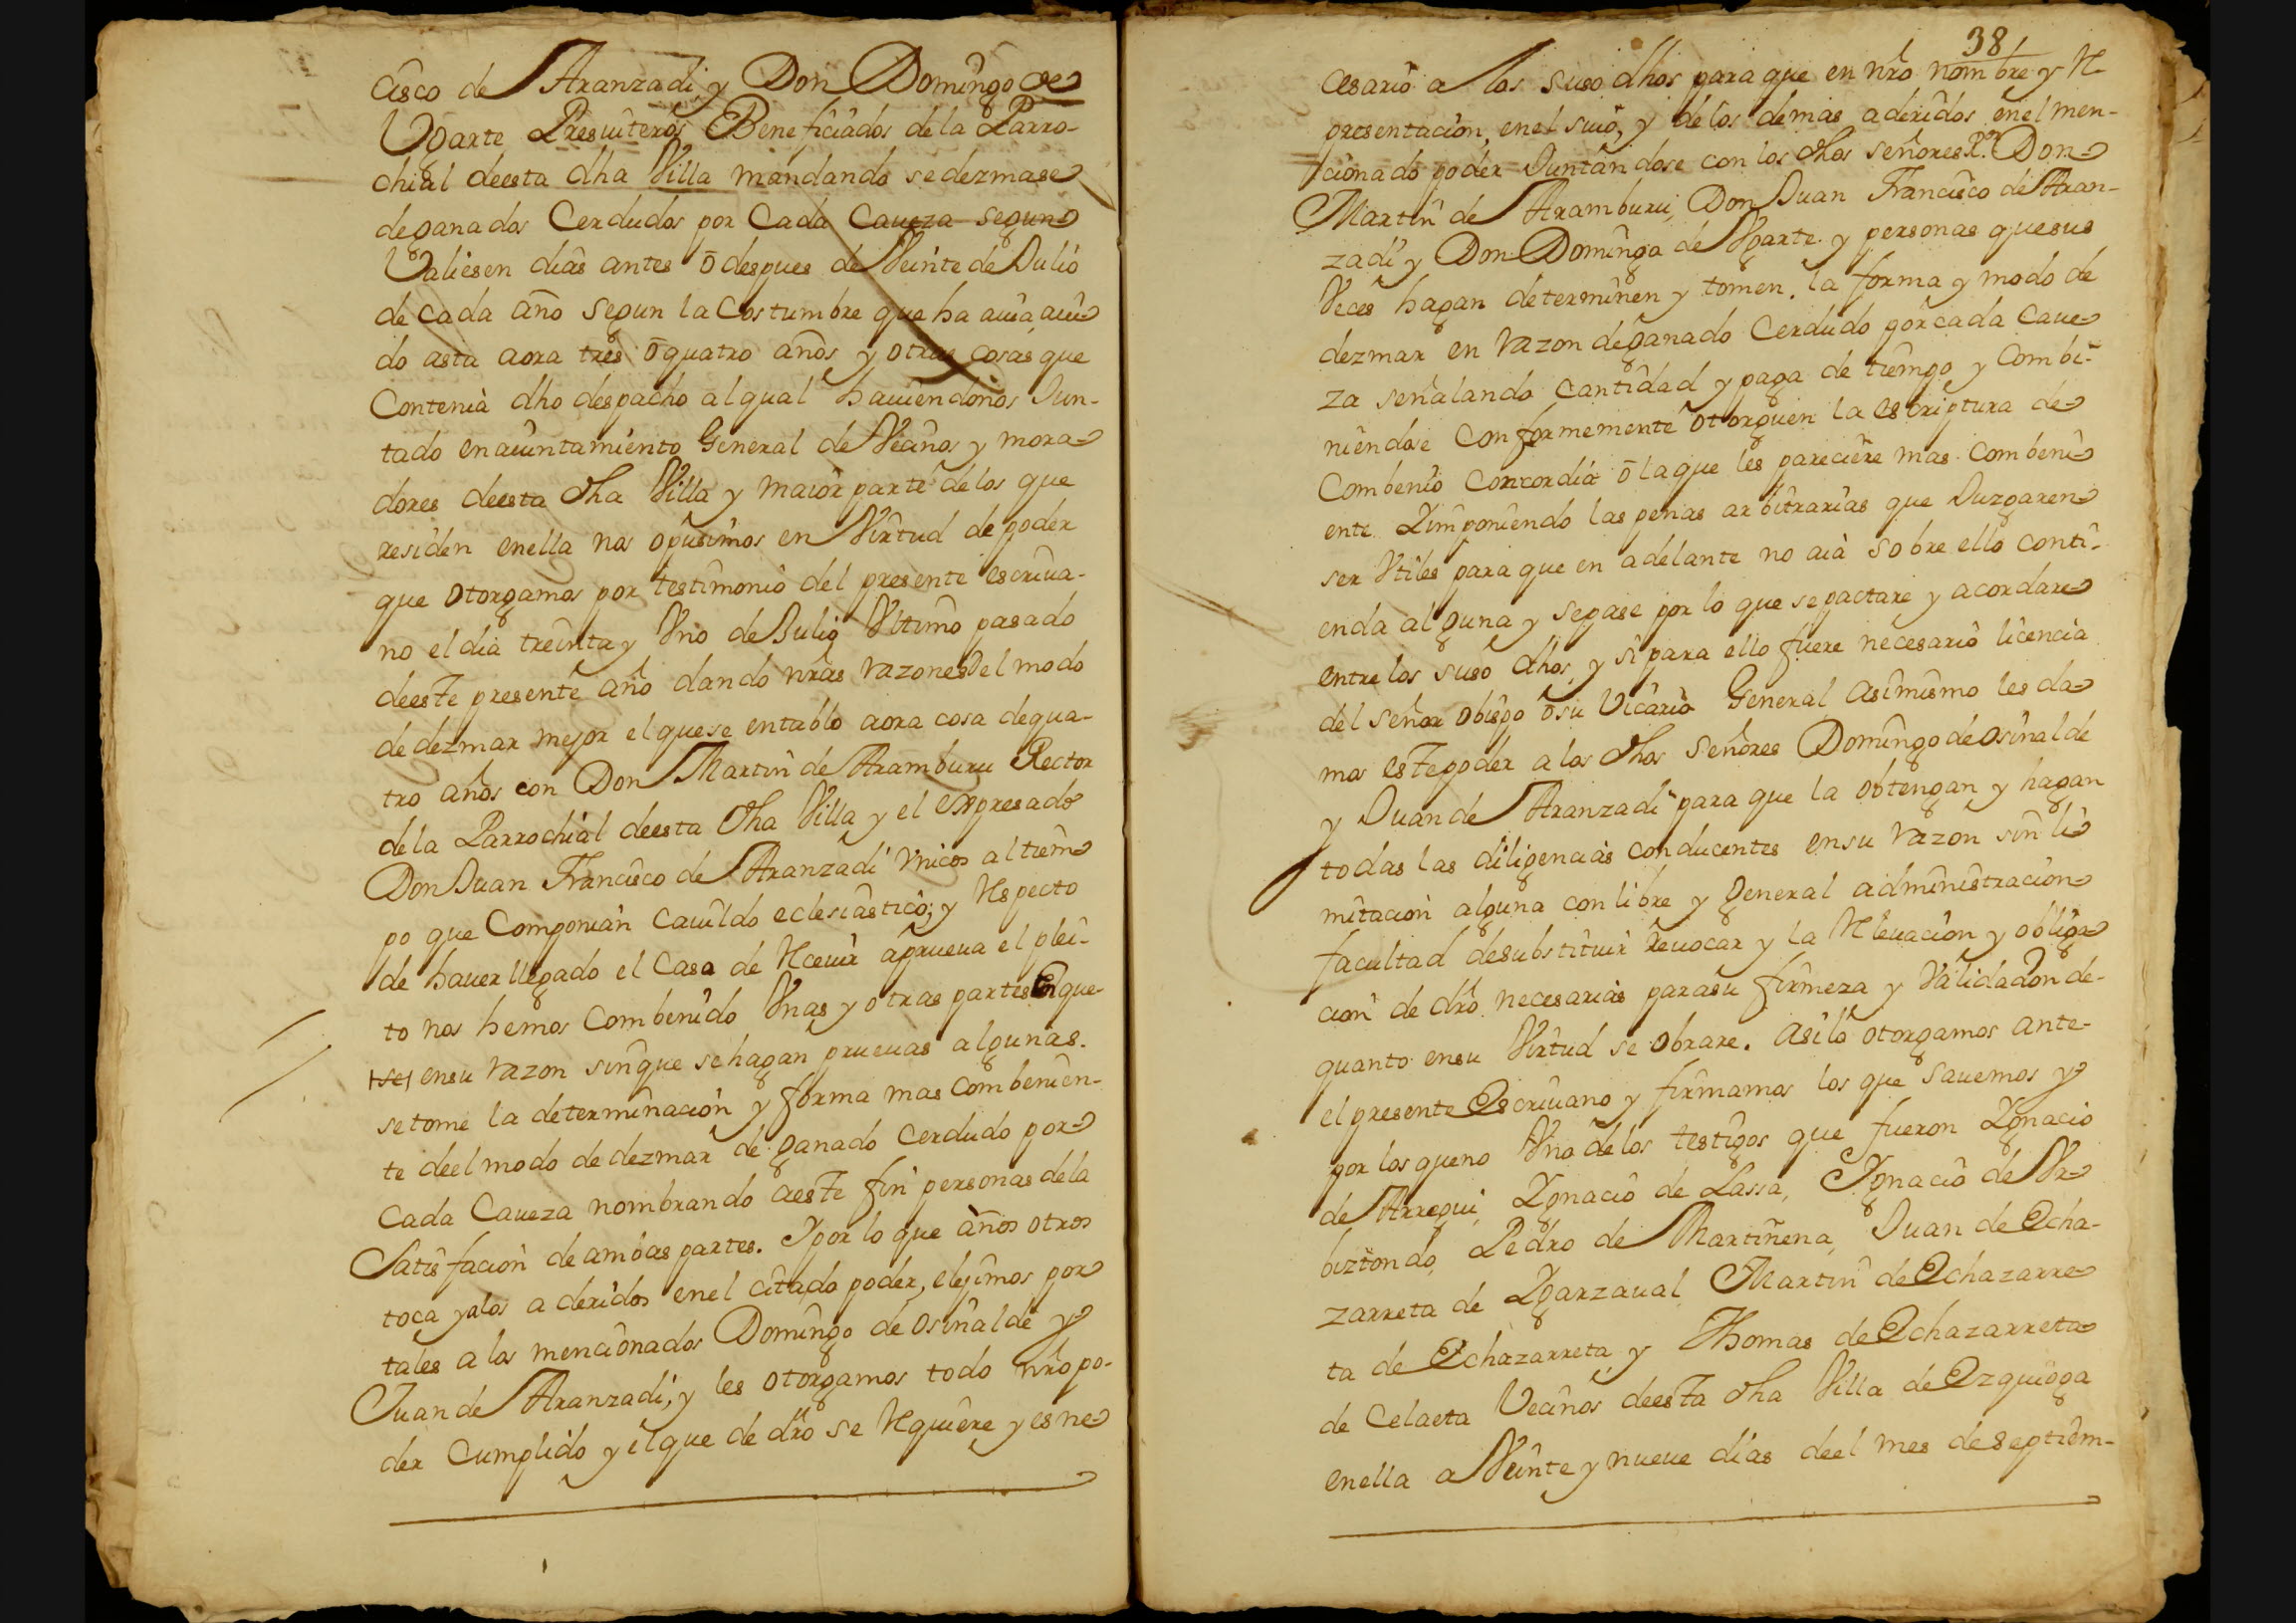 cisco de Aranzadi y Don Domingo de
Ugarte Presuiteros Beneficiados de la Parro-
chial deesta dha Villa mandando se dezmase
de ganados Cerdudos por Cada Caueza segun
Valiesen dias antes o despues de Veinte de Julio
de cada año segun la Costumbre que ha auia aui
do asta aora tres o quatro años y otras cosas que
Contenia dho despacho al qual hauiendonos Jun-
tado en aiuntamiento General de Vecinos y mora
dores deesta dha Villa y maior parte de los que
residen enella nos opusimos en Virtud de poder
que otorgamos por testimonio del presente escriua-
no el dia treinta y Uno de Julio Ultimo pasado
deeste presente año dando nras razones del modo
de dezmar mejor el que se entablo aora cosa de qua-
tro años con Don Martin de Aramburu Rector
de la Parrochial deesta dha Villa y el expresado
Don Juan Francisco de Aranzadi Unicos al tiem
po que Componian Cauildo eclesiastico; y Respecto
de hauer llegado el Caso de Receuir aprueua el plei-
to nos hemos Combenido Unas y otras partes En que
se ensu razon sin que se hagan prueuas algunas.
se tome la determinacion y forma mas Combenien-
te deel modo de dezmar de ganado Cerdudo por
Cada Caueza nombrando aeste fin personas de la
Satisfacion de ambas partes. Y por lo que anos otros
toca y alos aderidos enel citado poder, elejimos por
tales a los mencionados Domingo de Osinalde y
Juan de Aranzadi, y les otorgamos todo nro po-
der Cumplido y el que de dro se Requiere y es ne
38
cesario a los suso dhos para que en nro nombre y Re-
presentacion, enel suio, y de los demas aderidos enel men-
cionado poder Juntandose con los dhos señores Rr. Don
Martin de Aramburu, Don Juan Francisco de Aran-
zadi y Don Domingo de Ugarte y personas que sus
Veces hagan determinen y tomen. la forma y modo de
dezmar en razon de ganado Cerdudo por cada Caue
za señalando Cantidad y paga de tiempo y Combi-
niendose Conformemente otorguen la escriptura de
Combenio Concordia o la que les pareciere mas Combeni
ente Ximponiendo las penas arbitrarias que Juzgaren
ser Utiles para que en adelante no aia sobre ello conti-
enda alguna y se pase por lo que se pactare y acordare
entre los suso dhos, y si para ello fuere necesario licencia
del señor obispo o su Vicario General asimismo les da
mos este poder a los dhos señores Domingo de Osinalde
y Juan de Aranzadi para que la obtengan y hagan
todas las diligencias conducentes ensu razon sin li
mitacion alguna con libre y general administracion
facultad de substituir reuocar y la Releuacion y obliga
cion de dro necesarias para su firmeza y Validacion de-
quanto ensu Virtud se obrare. asi lo otorgamos ante-
el presente Escriuano y firmamos los que sauemos y
por los que no Uno de los testigos que fueron Ygnacio
de Arregui, Ygnacio de Lassa, Ygnacio de Ur
biztondo, Pedro de Martinena, Juan de Echa-
zarreta de Ygarzaual Martin de Echazarre
ta de Echazarreta, y Thomas de Echazarreta
de Celaeta Vecinos deesta dha Villa de Ezquioga
enella a Veinte y nueue dias deel mes de septiem-